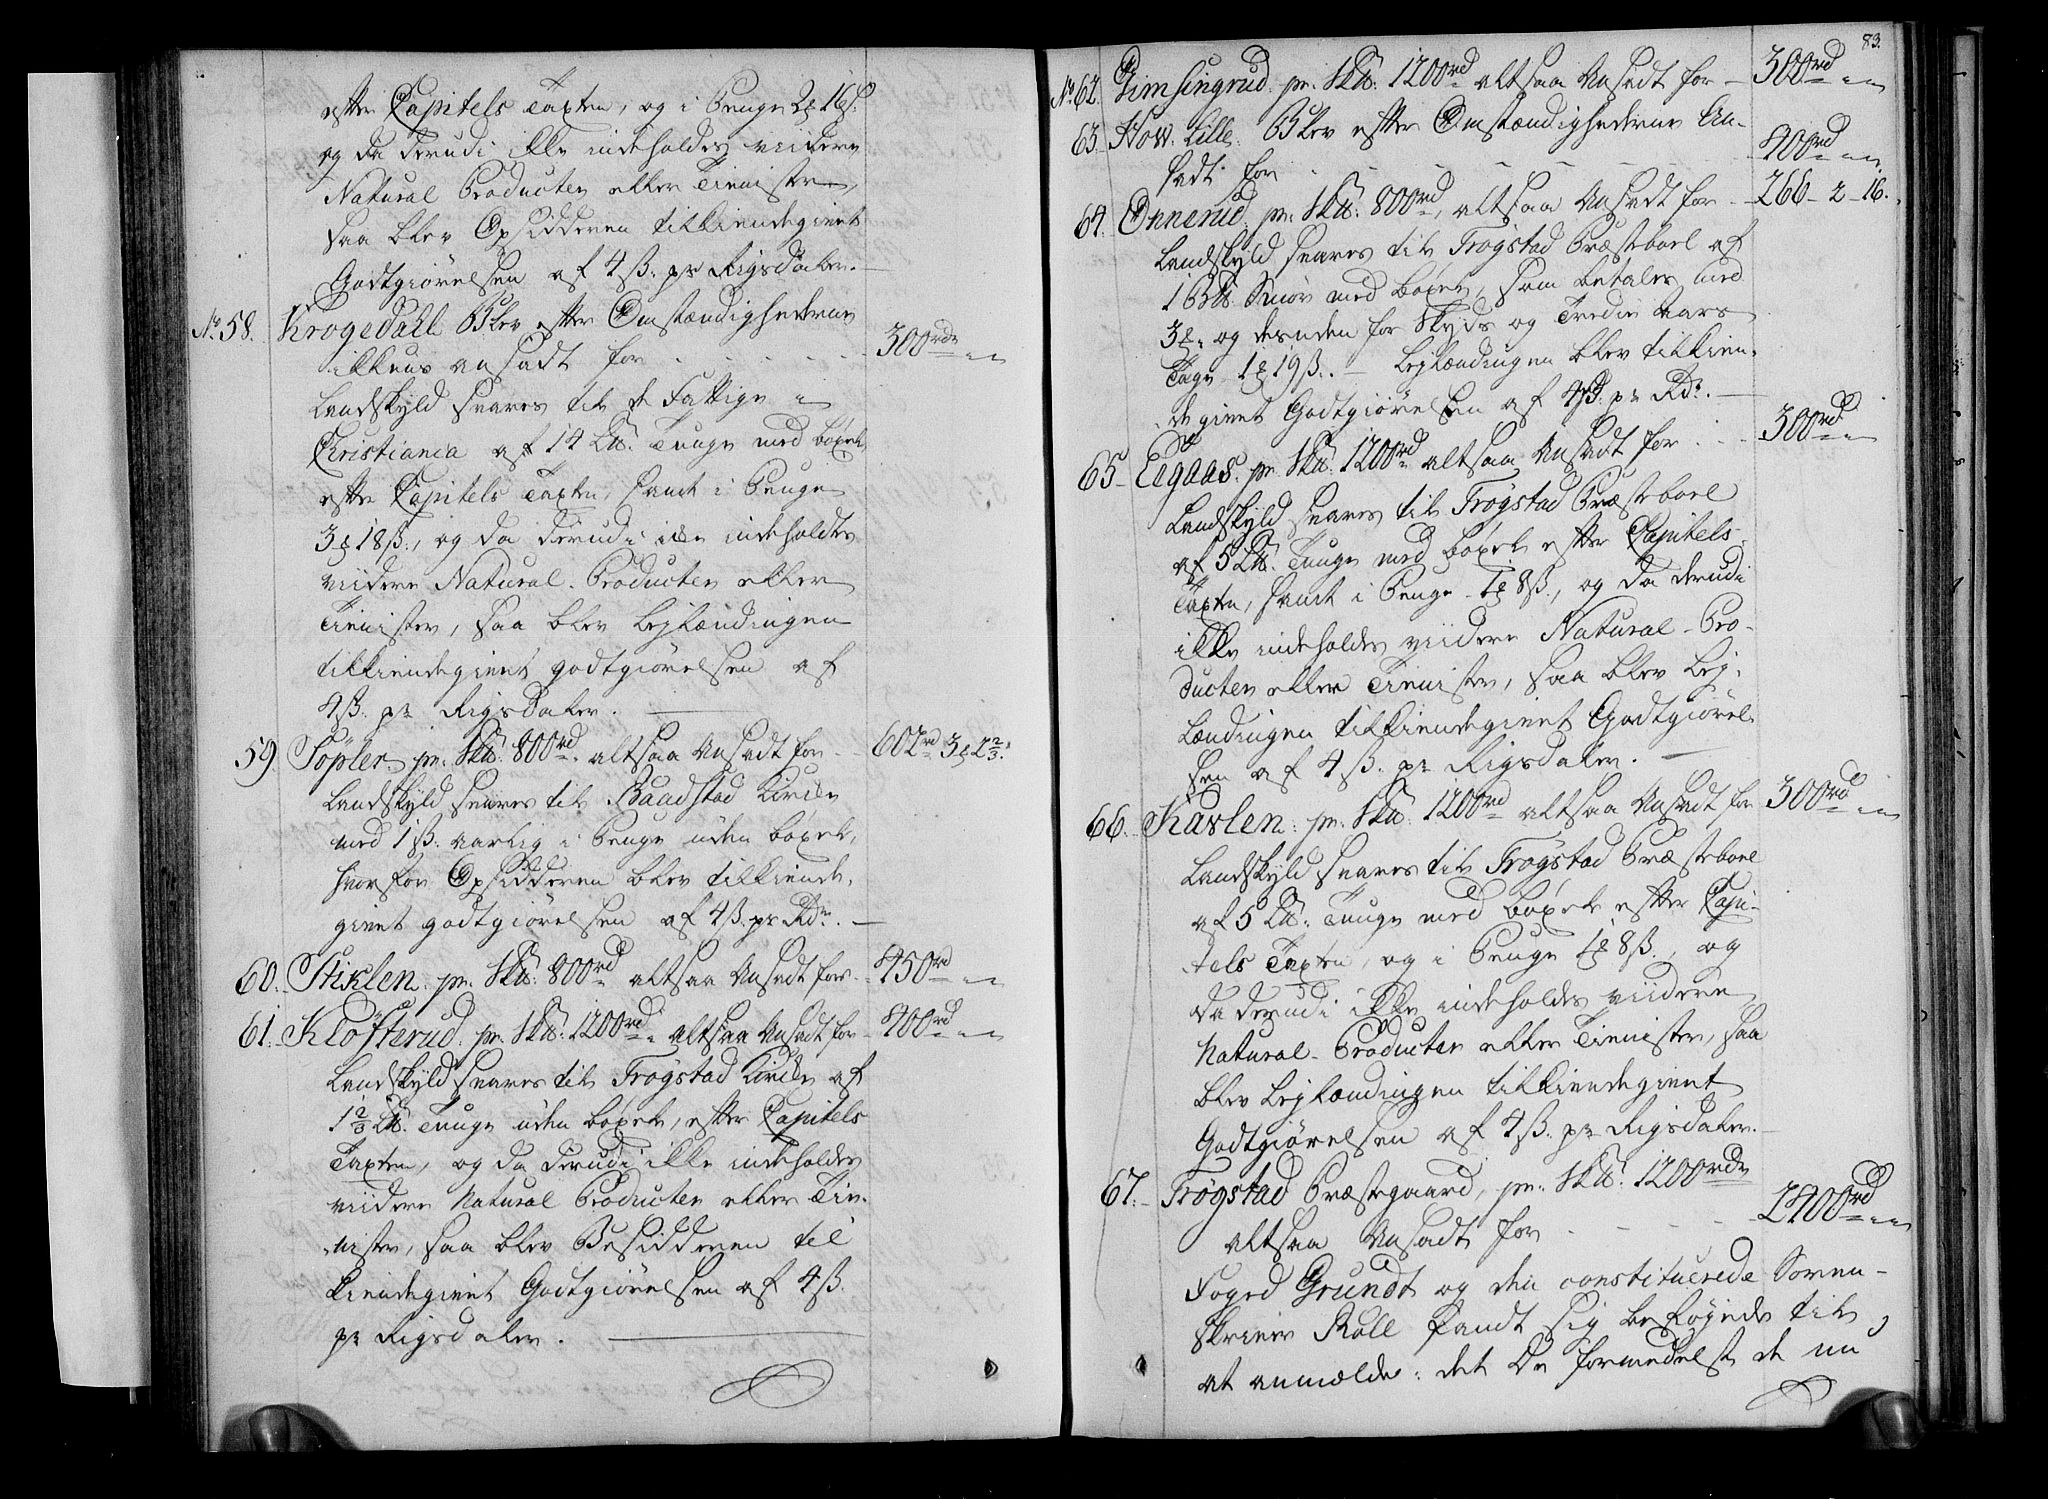 efter Capitels Taxten, og i Penge 2 16ß.
og da derudi ikke indeholdes viidere
Natural Producter eller Tienister,
saa blev Opsidderen tilkiendegivet
Godtgiørelsen af 4ß. pr Rigsdaler.
No. 58. Krogedahl Blev efter Omstændighederne
ikkuns ansadt for - - - - - 300rdr „ „
Landskyld svares til de Fattige i
Christiania af 14 L℔. Tunge med böxel
efter Capitels Taxten, samt i Penge
3 18ß., og da derudi icke indeholdes
viidere Natural-Producter eller
Tienister, saa blev Leylændingen
tilkiendegivet godtgiørelsen af
4ß. pr Rigsdaler.
59. Töpler pr. Sk℔: 800rd. altsaa Ansadt for - 602rd 3 2⅔.
Landskyld svares til Baadstad Kircke
med 1ß. aarlig i Penge uden böxel,
hvorfor Opsidderen blev tilkiende-
givet godtgiørelsen af 4ß. pr Rdr.
60. Stiklen pr. Sk℔: 800rd altsaa Ansadt for 450rd „ „
61. Klöfterud pr. Sk℔: 1200rd. altsaa Ansadt for 400rd „ „
Landskyld svares til Trögstad Kircke af
1⅔ L℔. Tunge uden böxel, efter Capitels
Taxten, og da derudi ikke indeholdes
viidere Natural Producter eller Tie-
nister, saa blev Besidderen til
kiendegivet Godtgiørelsen af 4ß.
pr Rigsdaler.
83.
No. 62. Gimsingrud pr. Sk℔: 1200rd altsaa Ansadt for - 300rd „ „
63. How Lille. Blev efter Omstændighederne An-
sadt for - - - - - 400rd „ „
64. Onnerud pr. Sk℔: 800rd, altsaa Ansadt for - 266 - 2 - 16.
Landskyld svares til Trögstad Præsteboel af
1 B℔. Smör med böxel, som betales med
3 og desuden for Skyds og Tredie Aars
Tage 1 19ß. - Leylændingen blev tilkien-
degivet Godtgiørelsen af 4ß. pr Rdr.
65. Eegaas. pr. Sk℔: 1200rd altsaa Ansadt for - 300rd „ „
Landskyld svares til Trögstad Præsteboel
af 5 L℔. Tunge med böxel efter Capitels-
Taxten, samt i Penge 1 8ß., og da derudi
ikke indeholdes viidere Natural-Pro-
ducter eller Tienister, saa blev Ley-
lændingen tilkiendegivet Godtgiørel-
sen af 4ß. pr Rigsdaler.
66. Kaslen: pr. Sk℔: 1200rd altsaa Ansadt for 300rd „ „
Landskyld svares til Trögstad Præsteboel
af 5 L℔: Tunge med böxel efter Capi-
tels Taxten, og i Penge 1 8ß., og
da derudi ikke indeholdes viidere
Natural-Producter eller Tienister, saa
blev Leylændingen tilkiendegivet
Godtgiørelsen af 4ß. pr Rigsdaler.
67. Trögstad Præstegaard, pr. Sk℔: 1200rdr
altsaa Ansadt for - - - - 2400rd „ „
Foged Grundt og den constituerede Soren-
skriver Roll fandt sig beföyede til
at anmælde: det De formedelst de nu